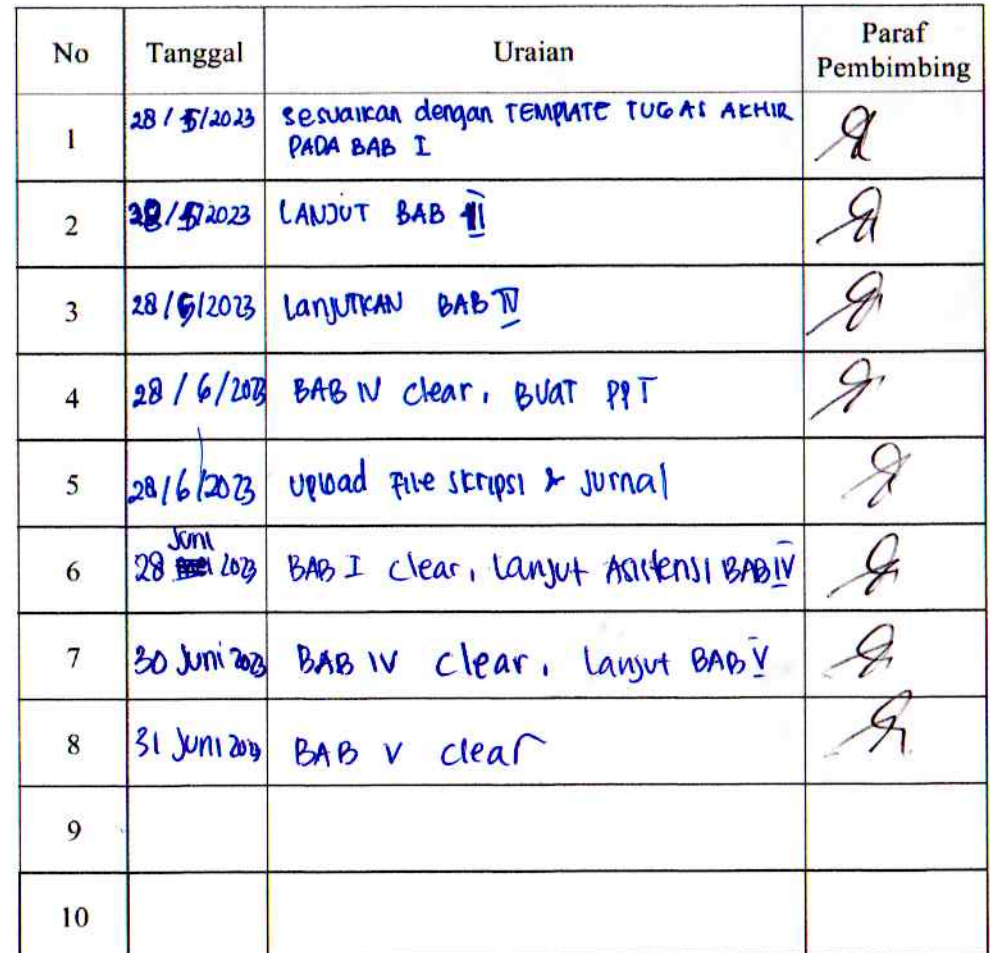 No Tanggal Uraian Paraf Pembimbing
1 28/5/2023 Sesuaikan dengan TEMPLATE TUGAS AKHIR
PADA BAB I
2 /2023 LANJUT BAB
3 28/6/2023 LanjUTKAN BAB IV
4 28/6/2023 BAB IV clear, BUAT PPT
5 28/6/2023 Upload File skripsi & Jurnal
6 28 Juni 2023 BAB I clear, Lanjut Asistensi BAB IV
7 30 Juni 2023 BAB IV clear, Lanjut BAB V
8 31 Juni 2023 BAB V clear
9
10